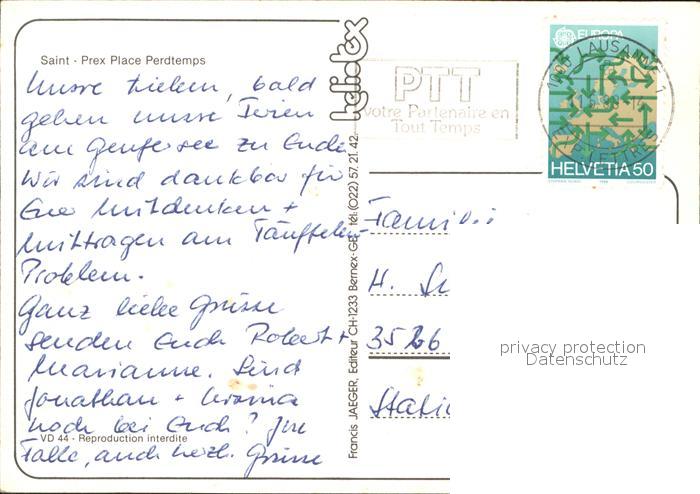 Saint - Prex Place Perdtemps
Unsre Lieben, bald
gehen unsre Ferien
am Genfersee zu Ende.
Wir sind dankbar für
Euer Mitdenken +
Mittragen am Täuffelen-
Problem.
Ganz liebe Grüsse
senden Euch Robert +
Marianne. Sind
Jonathan +
noch bei Euch? Im
Falle, auch herzl. Grüsse
VD 44 - Reproduction interdite
heliotex
Francis JAEGER, Editeur CH-1233 Bernex-GE, tél. (022) 57. 21. 42.
PTT
Votre Partenaire en
Tout Temps
EUROPA
1000 LAUSANNE 1
HELVETIA 50
Familie
H.
3526
privacy protection
Datenschutz